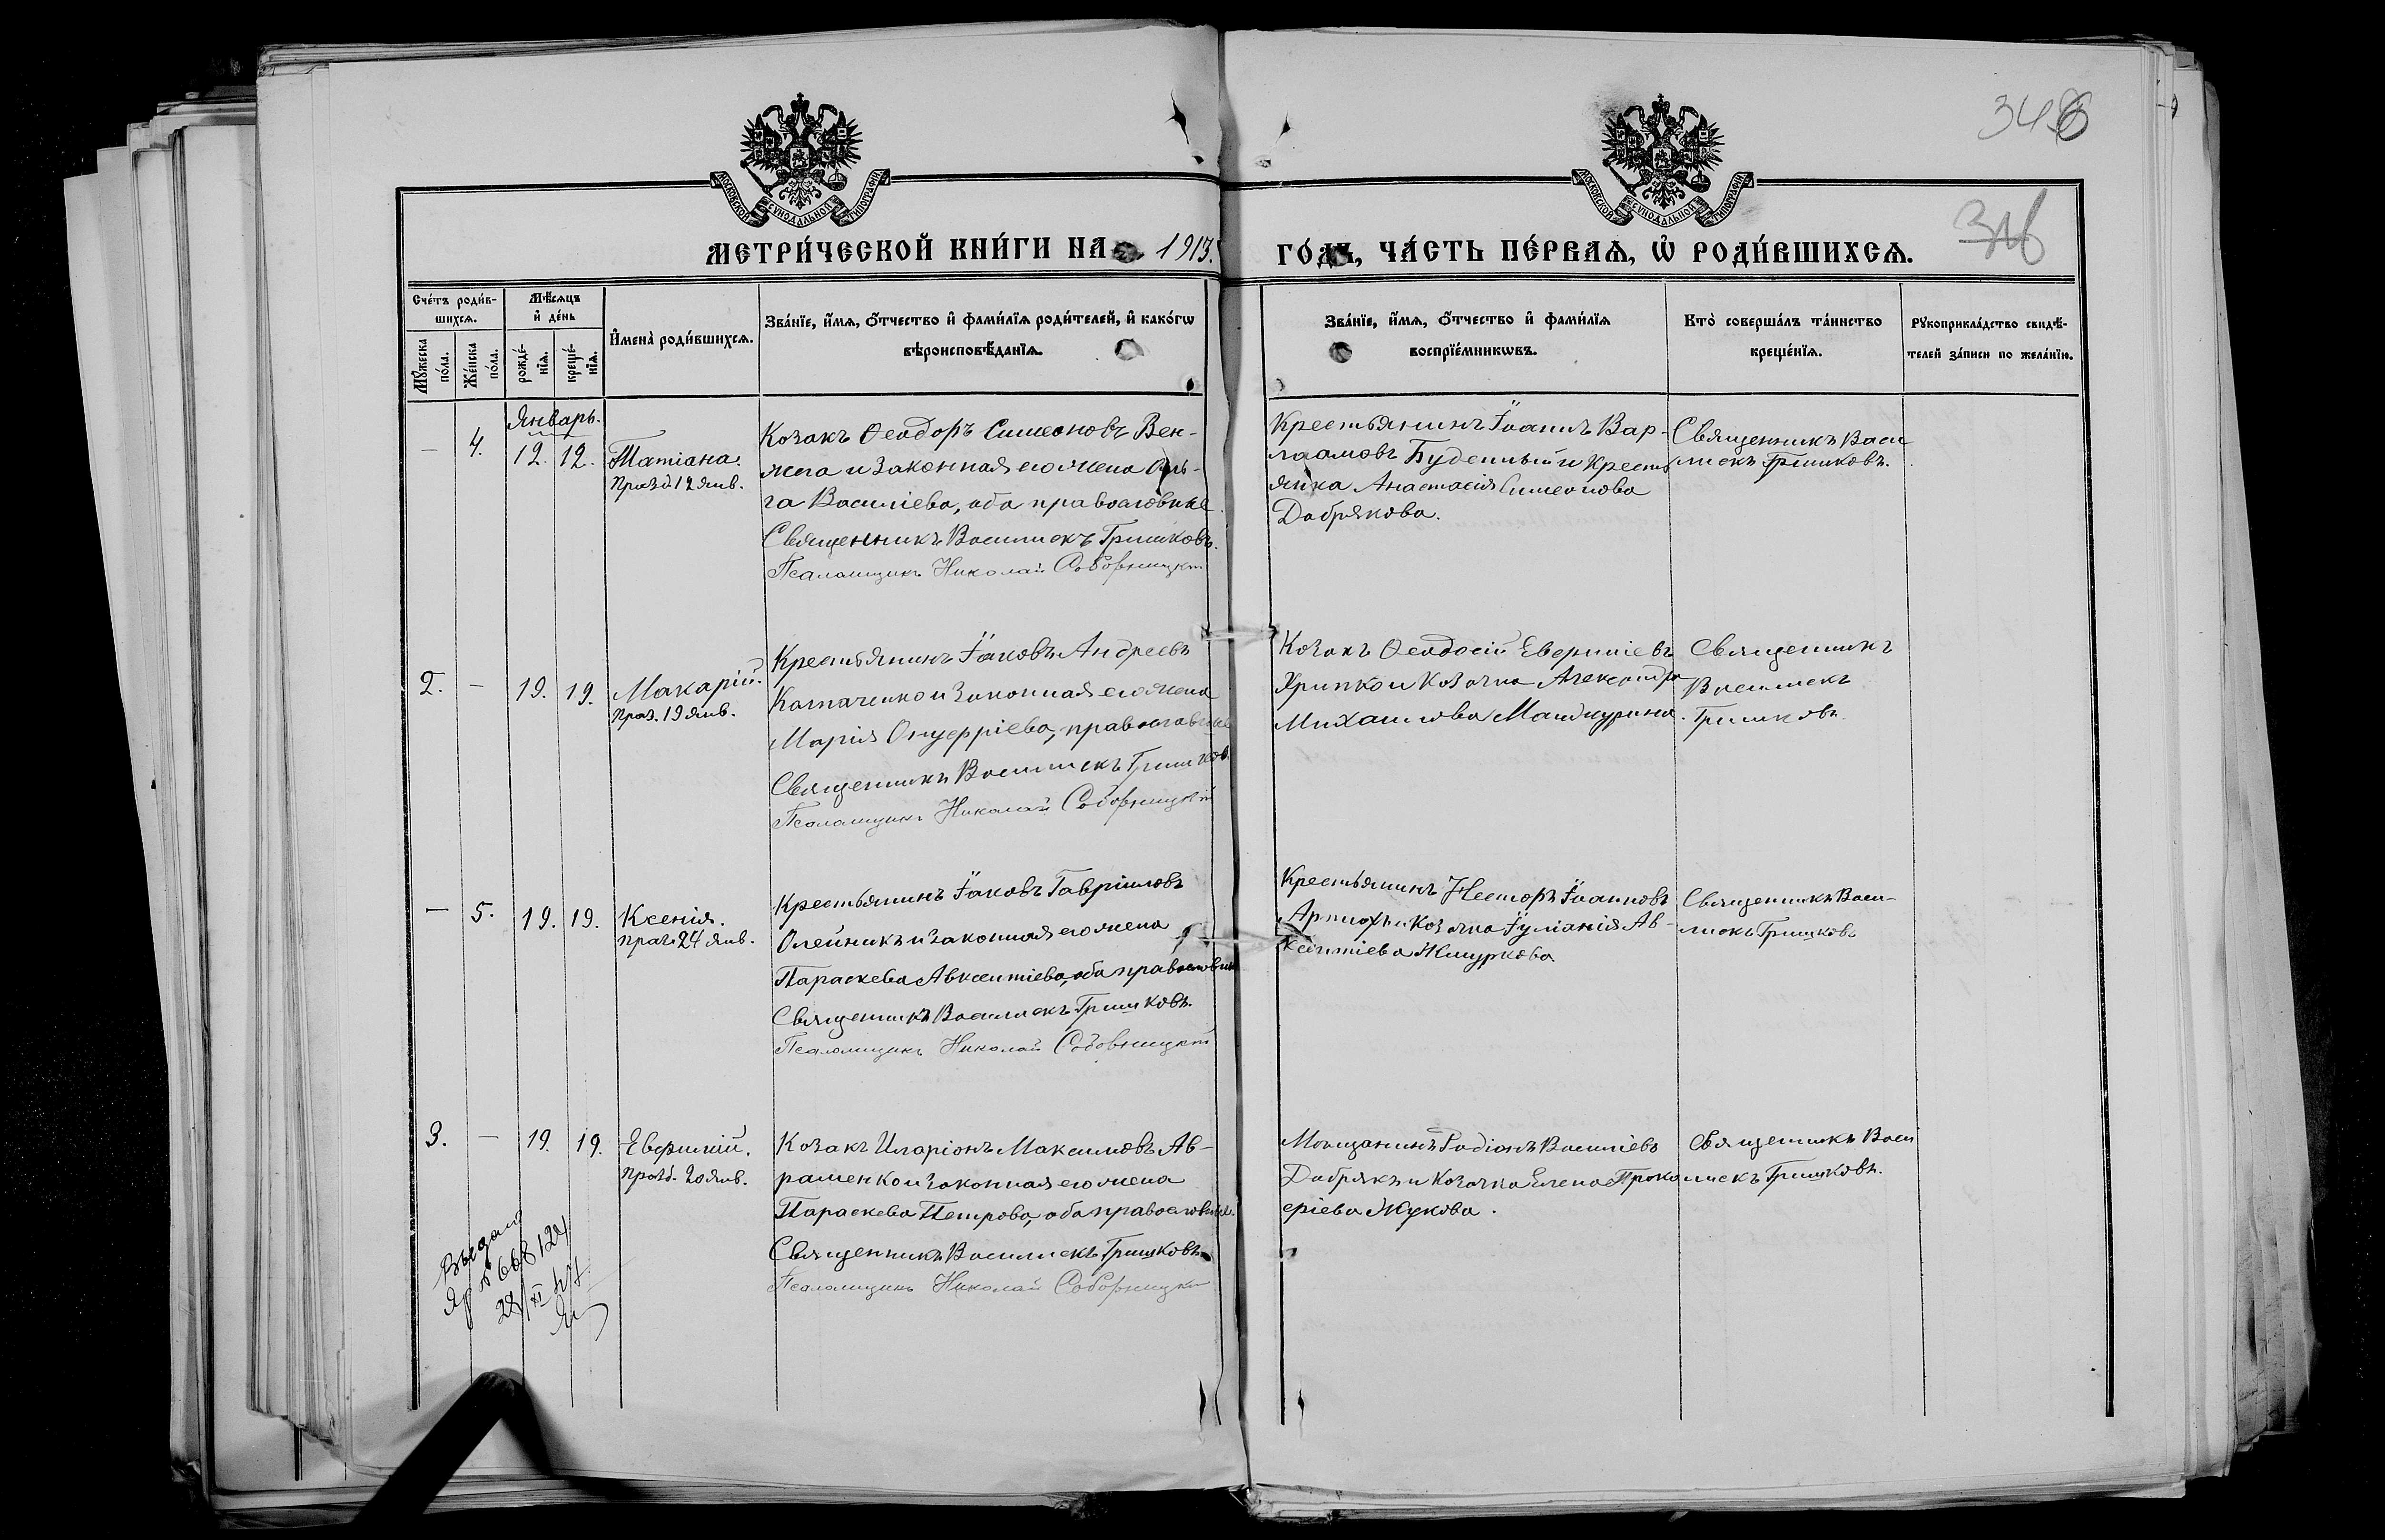 348
МОСКОВСКОЙ СУНОДАЛЬНОЙ ТИПОГРАФІИ
МОСКОВСКОЙ СУНОДАЛЬНОЙ ТИПОГРАФІИ
МЕТРИ́ЧЕСКОЙ КНИ́ГИ НА 1913.
ГО́ДЪ, ЧА́СТЬ ПЕ́РВАѦ, Ѡ҆ РОДИ́ВШИХСѦ.
Сче́тъ роди́в-
шихсѧ.
Мꙋ́жеска по́ла.
Же́нска по́ла.
Мѣ́сѧцъ
и҆ де́нь
рожде́-
нїѧ.
креще́-
нїѧ.
И҆мена̀ роди́вшихсѧ.
Зва́нїе, и҆́мѧ, ѻ҆́тчество и҆ фами́лїѧ роди́телей, и҆ како́гѡ
вѣроисповѣ́данїѧ.
Зва́нїе, и҆́мѧ, ѻ҆́тчество и҆ фами́лїѧ
воспрїе́мникѡвъ.
Кто̀ соверша́лъ та́инство
креще́нїѧ.
Рꙋкоприкла́дство свидѣ́-
телей за́писи по жела́нїю.
Январь.
— 4. 12. 12. Татіана.
Празд. 12 янв.
Козакъ Ѳеодоръ Симеоновъ Вен-
жега и законная его жена Оль-
га Василіева, оба православные.
Священникъ Василискъ Гришковъ.
Псаломщикъ Николай
Крестьянинъ Іоаннъ Вар-
лаамовъ Буденный и кресть
янка Анастасія Симеонова
Добрякова.
Священникъ Васи
лискъ Гришковъ.
2. — 19. 19. Макарій.
Праз. 19 янв.
Крестьянинъ Іаковъ Андреевъ
и законная его жена
Марія Онуфріева, православные
Священникъ Василискъ Гришковъ.
Псаломщикъ Николай
Козакъ Ѳеодосій
Хрипко и козачка Александра
Михаилова
Священникъ
Василискъ
Гришковъ.
— 5. 19. 19. Ксенія.
праз. 24 янв.
Крестьянинъ Іаковъ Гавріиловъ
Олейникъ и законная его жена
Параскева Авксентіева, оба православные
Священникъ Василискъ Гришковъ.
Псаломщикъ Николай
Крестьянинъ Несторъ Іоанновъ
и козачка Іуліанія Ав-
ксентіева
Священникъ Васи-
лискъ Гришковъ
3. — 19. 19. Евфимій.
Празд. 20 янв.
Козакъ Иларіонъ Максимовъ Ав-
раменко и законная его жена
Параскева Петрова, оба православные.
Священникъ Василискъ Гришковъ
Псаломщикъ Николай
Мѣщанинъ Родіонъ Василіевъ
Добрякъ и козачка Елена Проко
Жукова.
Священникъ Васи
лискъ Гришковъ.